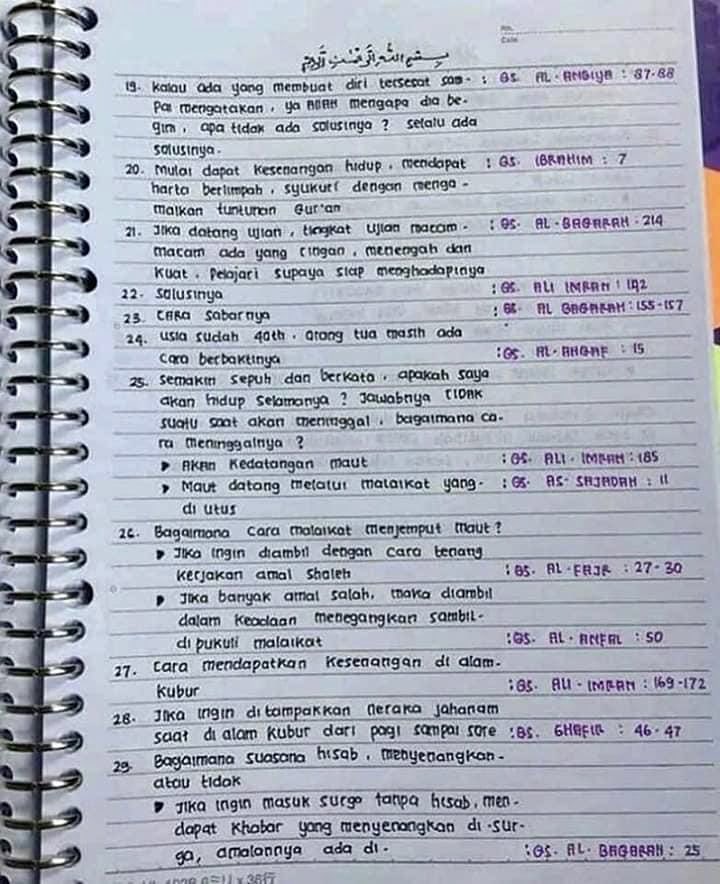 No.
Date
بسم الله الرحمن الرحيم
19. Kalau ada yang membuat diri tersesat sam- : QS. AL-ANBIYA : 87-88
pai mengatakan, ya Allah mengapa dia be-
gini, apa tidak ada solusinya ? selalu ada
solusinya.
20. Mulai dapat kesenangan hidup, mendapat : QS. IBRAHIM : 7
harta berlimpah, syukuri dengan menga-
malkan tuntunan Qur'an
21. Jika datang ujian, tingkat ujian macam- : QS. AL-BAQARAH : 214
macam ada yang ringan, menengah dan
kuat, pelajari supaya siap menghadapinya
22. Solusinya : QS. ALI IMRAN : 142
23. CARA sabarnya : QS. AL BAQARAH : 155-157
24. usia sudah 40th, orang tua masih ada
cara berbaktinya : QS. AL-AHQAF : 15
25. semakin sepuh dan berkata, apakah saya
akan hidup selamanya ? Jawabnya TIDAK
suatu saat akan meninggal, bagaimana ca-
ra meninggalnya ?
▶ AKAN kedatangan maut : QS. ALI-IMRAN : 185
▶ Maut datang melalui malaikat yang- : QS. AS-SAJADAH : 11
di utus
26. Bagaimana cara malaikat menjemput maut ?
▶ Jika ingin diambil dengan cara tenang
kerjakan amal shaleh : QS. AL-FAJR : 27-30
▶ Jika banyak amal salah, maka diambil
dalam keadaan menegangkan sambil-
di pukuli malaikat : QS. AL-ANFAL : 50
27. Cara mendapatkan kesenangan di alam-
kubur : QS. ALI-IMRAN : 169-172
28. Jika ingin di tampakkan neraka jahanam
saat di alam kubur dari pagi sampai sore : QS. GHAFIR : 46-47
29. Bagaimana suasana hisab, menyenangkan-
atau tidak
▶ Jika ingin masuk surga tanpa hisab, men-
dapat khabar yang menyenangkan di-sur-
ga, amalannya ada di- : QS. AL-BAQARAH : 25